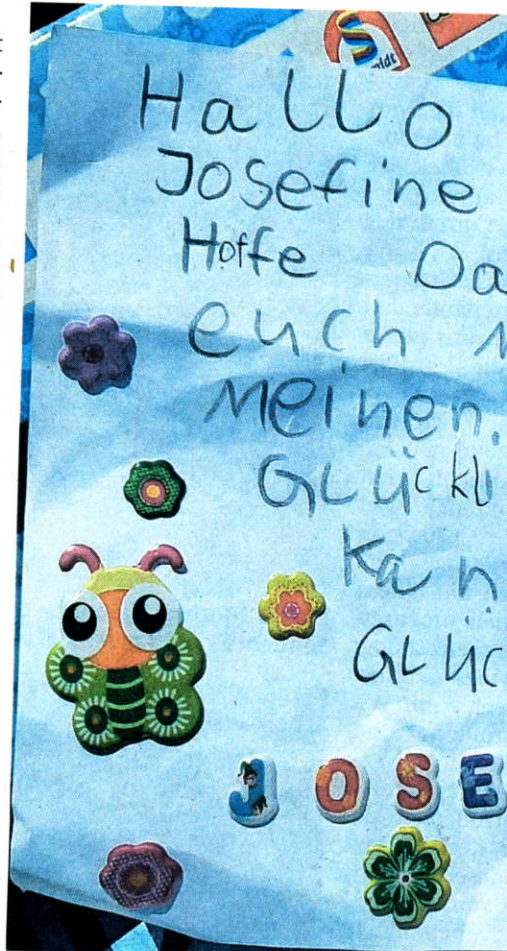 Hallo
Josefine
Hoffe Da
euch
meinen.
Glückli
kan
Glüc
JOSE